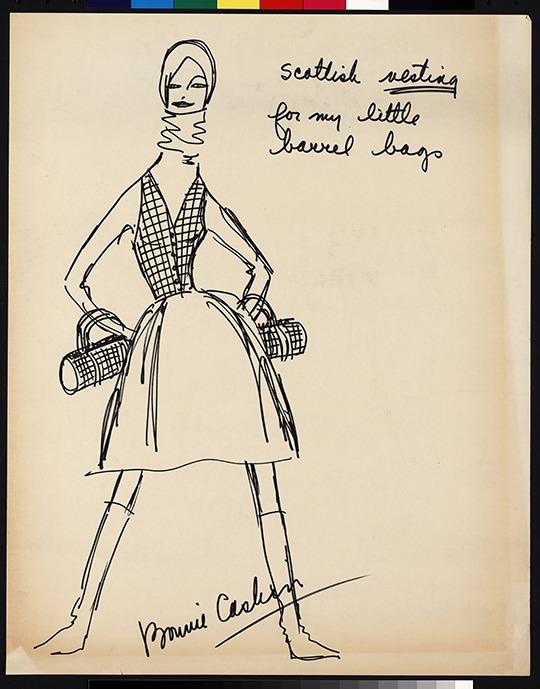 scottish vesting
for my little
barrel bags
Bonnie Cashin